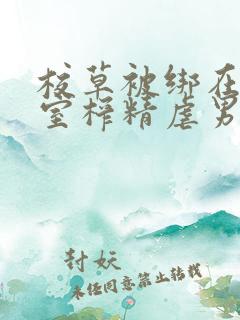 校草被绑在
室榨精虐男
封妖
未经同意禁止转载